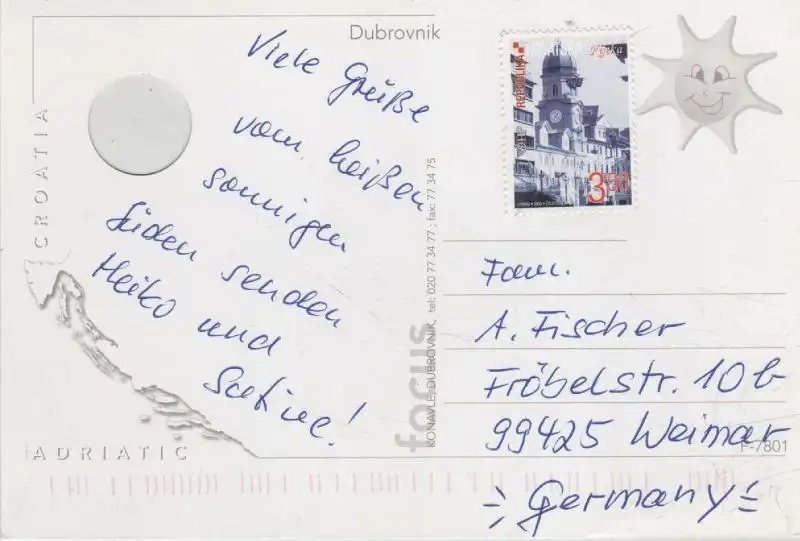 Dubrovnik
CROATIA
Viele Grüße
vom heißen
sonnigen
Süden senden
Heiko und
Sabine!
ADRIATIC
focus
KONAVLE, DUBROVNIK, tel: 020 77 34 77; fax: 77 34 75
REPUBLIKA
Rijeka
3,50
Fam.
A. Fischer
Fröbelstr. 10 b
99425 Weimar
F-7801
Germany